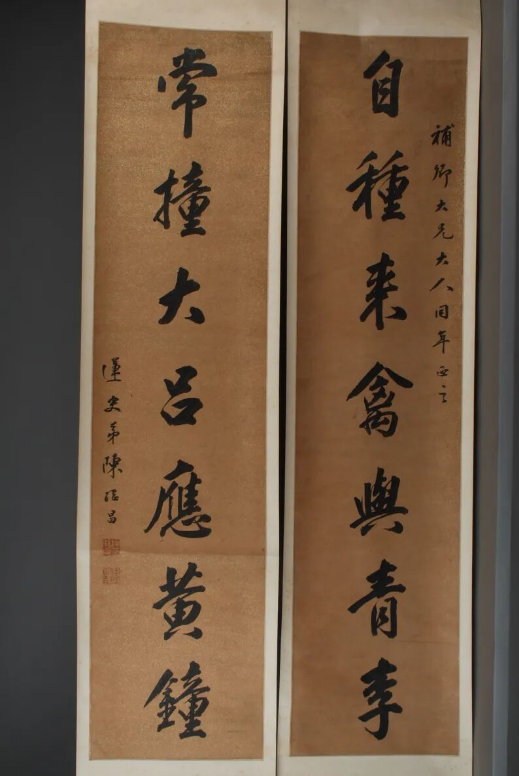 補卿大兄大人同年正之
自種来禽與青李
常撞大吕應黃鐘
蓮史弟陳繼昌